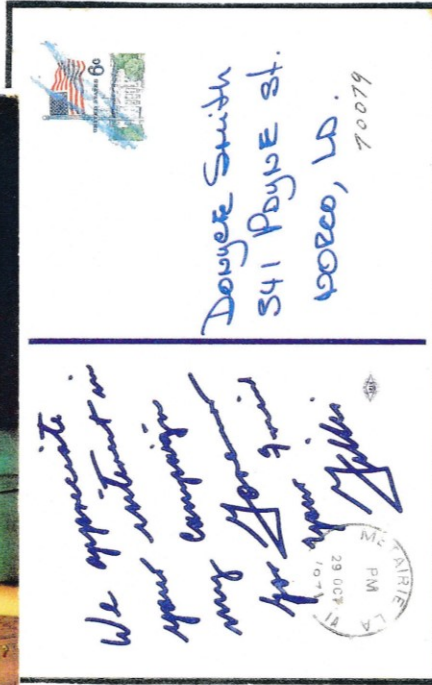 We appreciate
your interest in
my campaign
for Governor
your
METAIRIE LA
PM
29 OCT
1971
6c
Smith
541 PAYNE St.
NORCO, LA.
70079